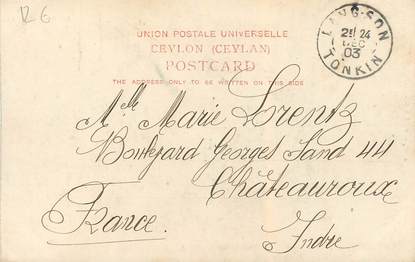 R 6
UNION POSTALE UNIVERSELLE
CEYLON (CEYLAN)
POSTCARD
THE ADDRESS ONLY TO BE WRITTEN ON THIS SIDE
LANG-SON
24
DEC
03
TONKIN
Mlle Marie Lorentz
Boulevard Georges Sand 44
Châteauroux
France.
Indre